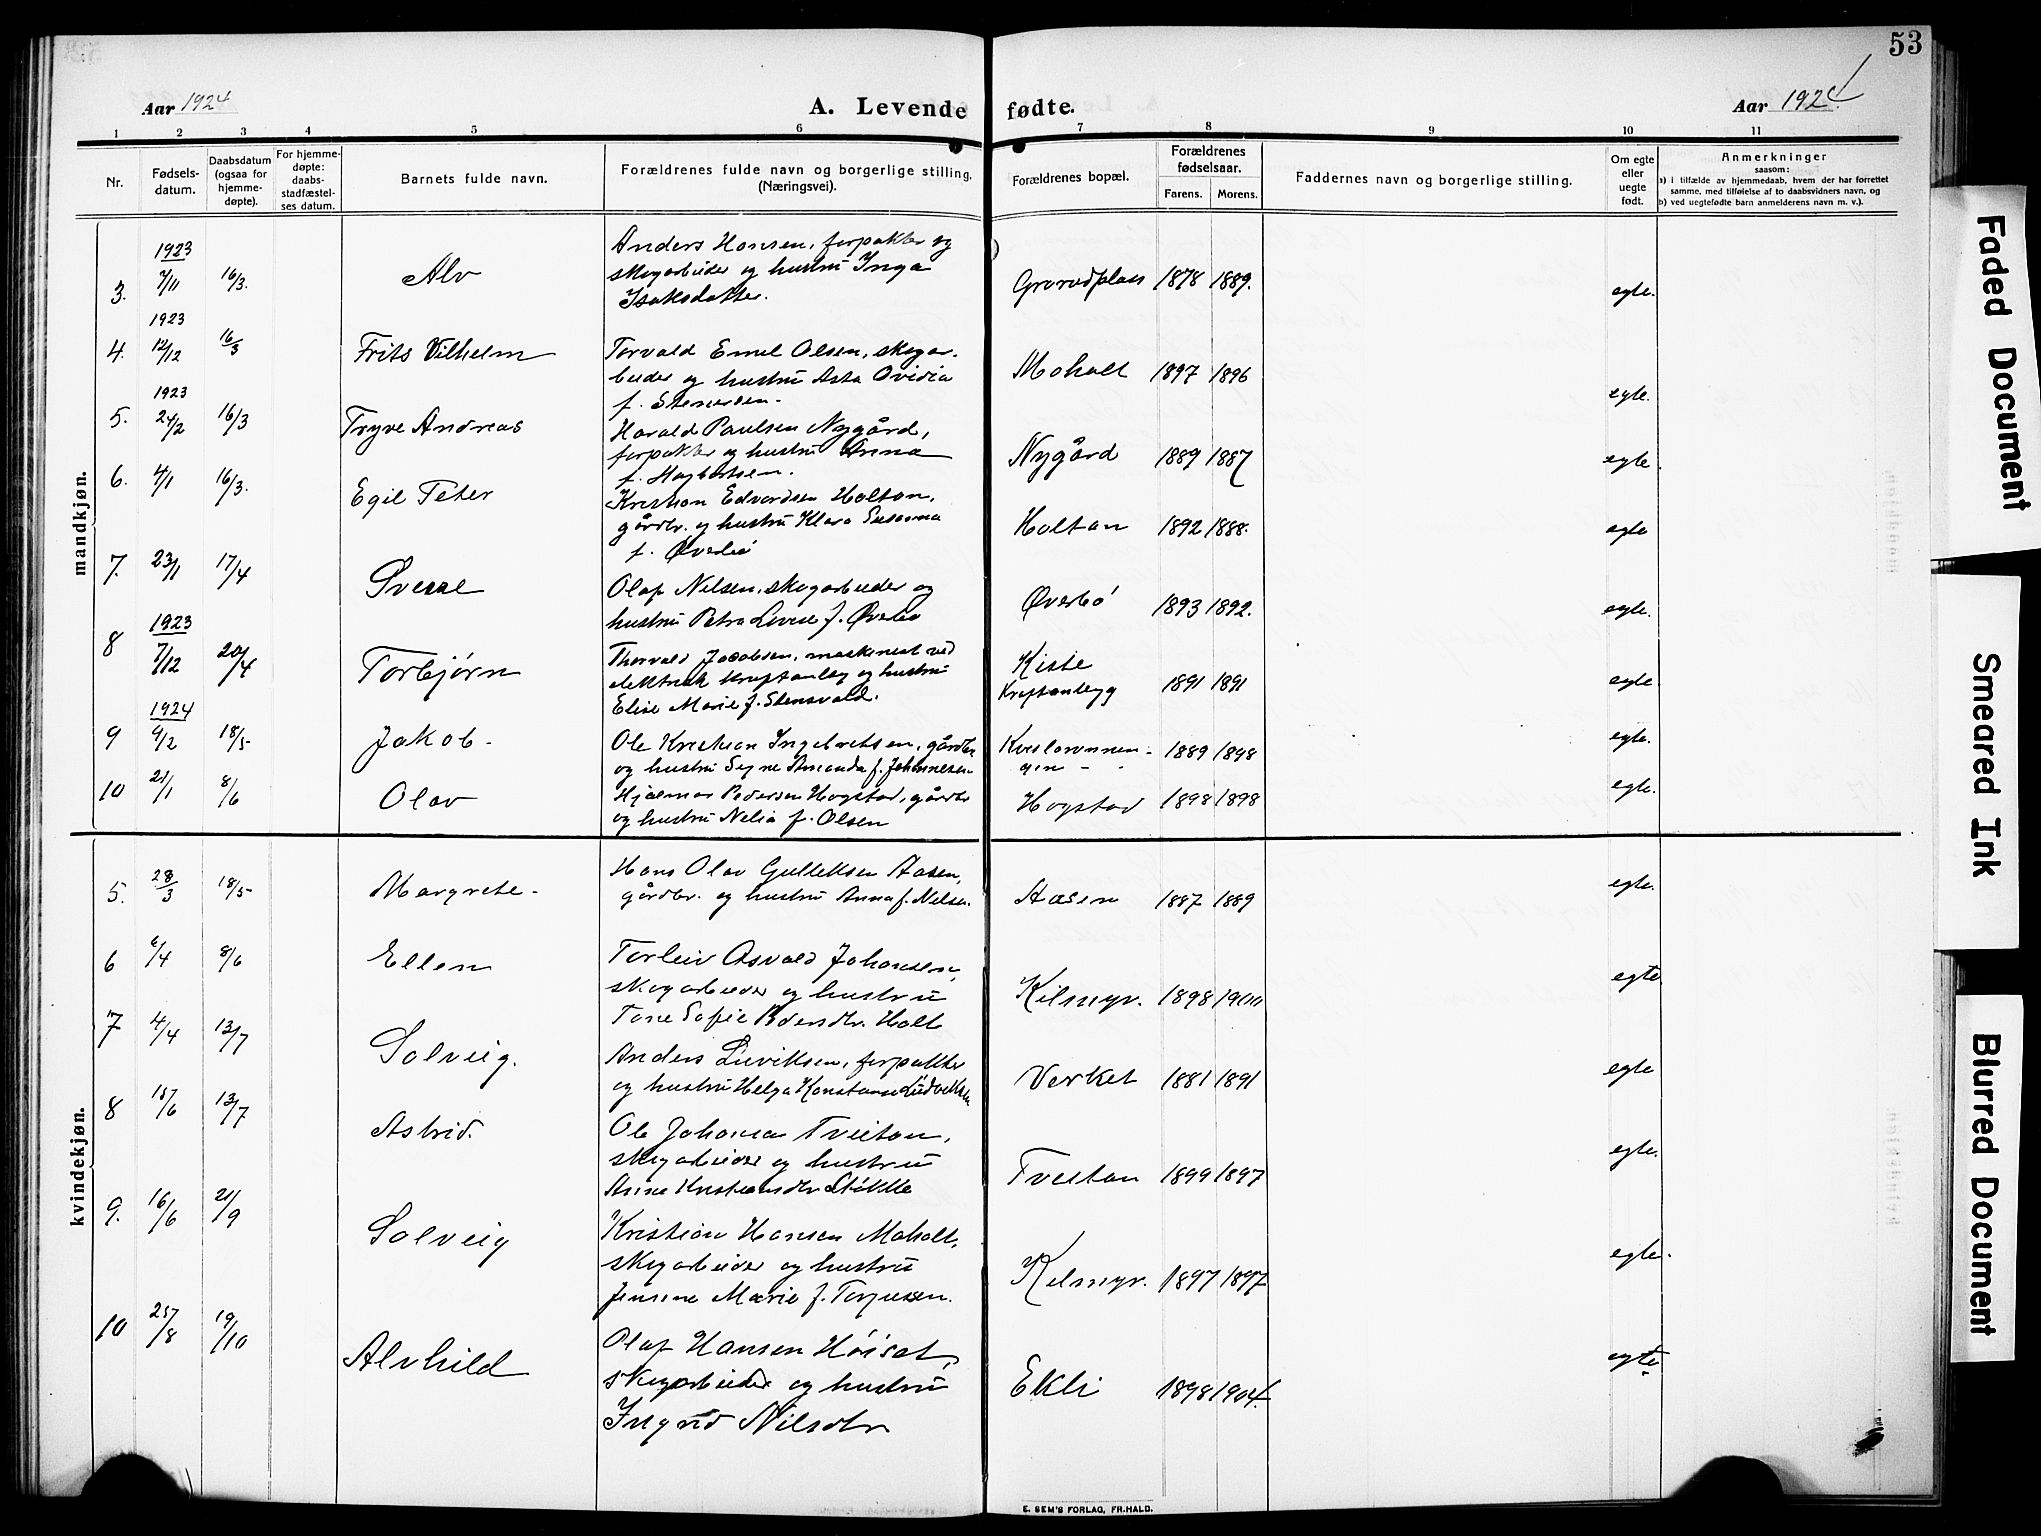 53
Aar 1924
A. Levende fødte.
Aar 1924
1 2 3 4 5 6 7 8 9 10 11
Nr.
Fødsels-
datum.
Daabsdatum
(ogsaa for
hjemme-
døpte).
For hjemme-
døpte:
daabs-
stadfæstel-
ses datum.
Barnets fulde navn.
Forældrenes fulde navn og borgerlige stilling.
(Næringsvei).
Forældrenes bopæl.
Forældrenes
fødselsaar.
Farens. Morens.
Faddernes navn og borgerlige stilling.
Om egte
eller
uegte
født.
Anmerkninger
saasom:
a) i tilfælde av hjemmedaab, hvem der har forrettet
samme, med tilføielse af to daabsvidners navn, og
b) ved uegtefødte barn anmelderens navn m. v.).
mandkjøn.
1923
3. 7/11 16/3. Alv
Anders Hansen, forpakter og
skogarbeider og hustru Inga
Isaksdatter.
1878 1889. egte.
1923
4. 12/12 16/3 Frits Vilhelm
Torvald Emil Olsen, skogar-
beider og hustru Asta Ovidia
f. Stenersen.
Moholt 1897 1896 egte.
1923
5. 24/2 16/3 Tryve Andreas
Harald Paulsen Nygård,
forpakter og hustru Anna
Nygård 1889 1887 egte.
6. 4/1 16/3. Egil Peter
Kristian Edvardsen Holtan,
gårdbr. og hustru Klara Susanna
f. Øverbø
Holtan 1892 1888. egte
7. 23/1 17/4 Sverre
Olaf Nilsen, skogarbeider og
hustru Petra Lovise f. Øverbø
Øverbø 1893 1892. egte.
1923
8 7/12 20/4 Torbjørn
Thorvald Jacobsen, maskinist ved
elektrisk kraftanlæg og hustru
Elise Marie f. Stensvald.
Kiste
Kraftanlegg 1891 1891 egte
1924
9 9/2 18/5- Jakob-
Ole Kristian Ingebretsen, gårdbr
og hustru Signe Amanda f. Johannesen
1889 1898 egte.
10 21/1 8/6 Olav
Hjalmar Pedersen Hogstad, gårdbr
og hustru Nelia f. Olsen
Hogstad 1898 1898 egte.
kvindekjøn.
5. 28/3 18/5- Margrete-
Hans Olav Gulleksen Aasen,
gårdbr. og hustru Anna f. Nilsen.
Aasen 1887 1889 egte.
6 6/4 8/6 Ellen
Torleiv Osvald Johansen,
skogarbeider og hustru
Tone Sofie Pedersdtr. Holt
Kilmyr. 1898 1900 egte
7 4/4 13/7 Solveig.
Anders Ludviksen, forpakter
og hustru Helga Konstanse Ludviksen
Verket 1881 1891 egte
8 15/6 13/7 Astrid.
Ole Johansen Tveitan,
skogarbeider og hustru
Anne Kristiansdtr Stokke
Tveitan 1899 1897 egte.
9. 16/6 21/9 Solveig
Kristian Hansen Moholt,
skogarbeider og hustru
Jensine Marie f. Torjussen.
Kilmyr. 1897 1897 egte.
10 25/8 19/10 Alvhild
Olaf Hansen Høiset,
skogarbeider og hustru
Ingrid Nilsdtr
Ekli 1898 1904. egte.
E. SEM'S FORLAG, FR.HALD.
Faded Document
Smeared Ink
Blurred Document